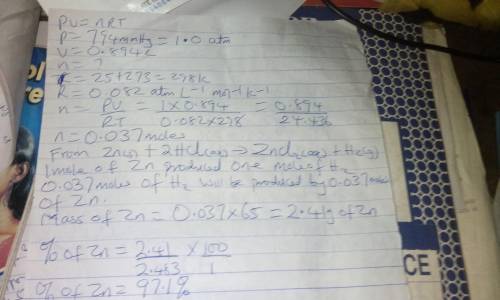 PV = nRT
P = 794mmHg = 1.0 atm
V = 0.894L
n = ?
T = 25+273 = 298k
R = 0.082 atm L⁻¹ mol⁻¹ k⁻¹
n = PV/RT = 1 x 0.894/0.082x298 = 0.894/24.436
n = 0.037 moles
From Zn(s) + 2HCl(aq) → ZnCl2(aq) + H2(g)
1 mole of Zn produced one mole of H2
0.037 moles of H2 will be produced by 0.037 moles
of Zn.
Mass of Zn = 0.037 x 65 = 2.41g of Zn
% of Zn = 2.41/2.483 x 100/1
% of Zn = 97.1%
CE